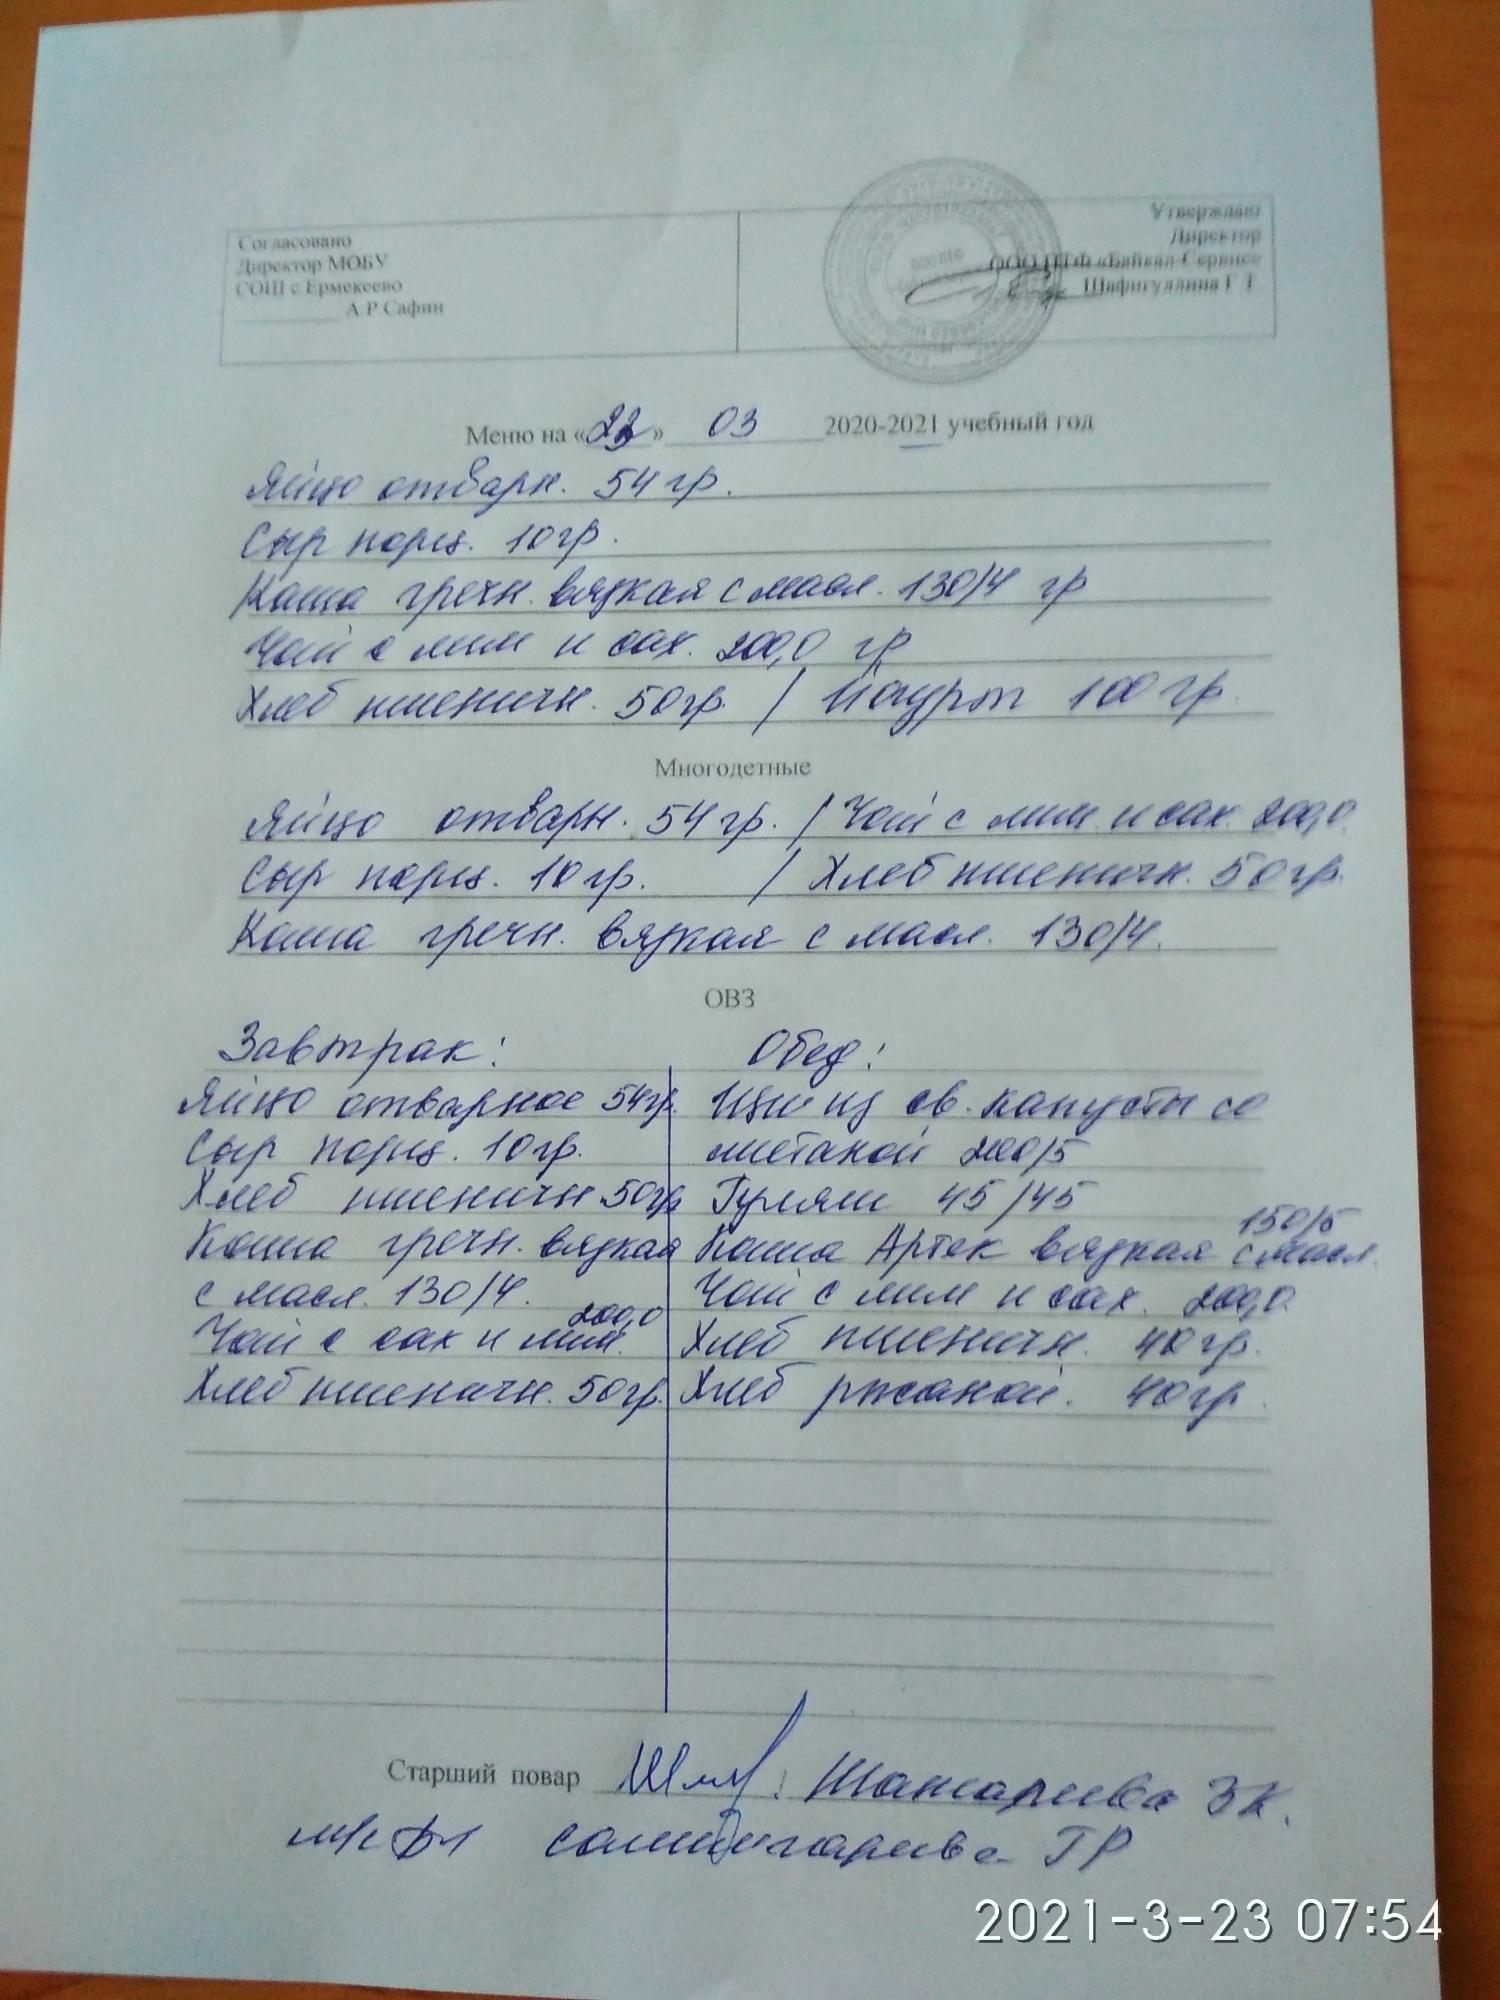 Согласовано
Директор МОБУ
СОШ с Ермекеево
А Р Сафин
Утверждаю
Директор
ООО ПТФ «Байкал-Сервис»
Шафигуллина Г Т
Меню на «23» 03 2020-2021 учебный год
Яйцо отварн. 54 гр.
Сыр порц. 10 гр.
Каша гречн. вязкая с масл. 130/4 гр
Чай с лим и сах. 200,0 гр
Хлеб пшеничн. 50 гр. / Йогурт 100 гр.
Многодетные
Яйцо отварн. 54 гр. / Чай с лим и сах 200,0
Сыр порц. 10 гр. / Хлеб пшеничн. 50 гр.
Каша гречн. вязкая с масл. 130/4.
ОВЗ
Завтрак:
Яйцо отварное 54гр.
Сыр порц. 10 гр.
Хлеб пшеничн 50гр
Каша гречн. вязкая
с масл. 130/4.
200,0
Чай с сах и лим.
Хлеб пшеничн. 50гр.
Обед:
Щи из св. капусты со
сметаной 200/5
Гуляш 45/45
150/5
Каша Артек вязкая с масл.
Чай с лим и сах. 200,0
Хлеб пшеничн. 40 гр.
Хлеб ржаной. 40 гр.
Старший повар
З К.
ГР
2021-3-23 07:54